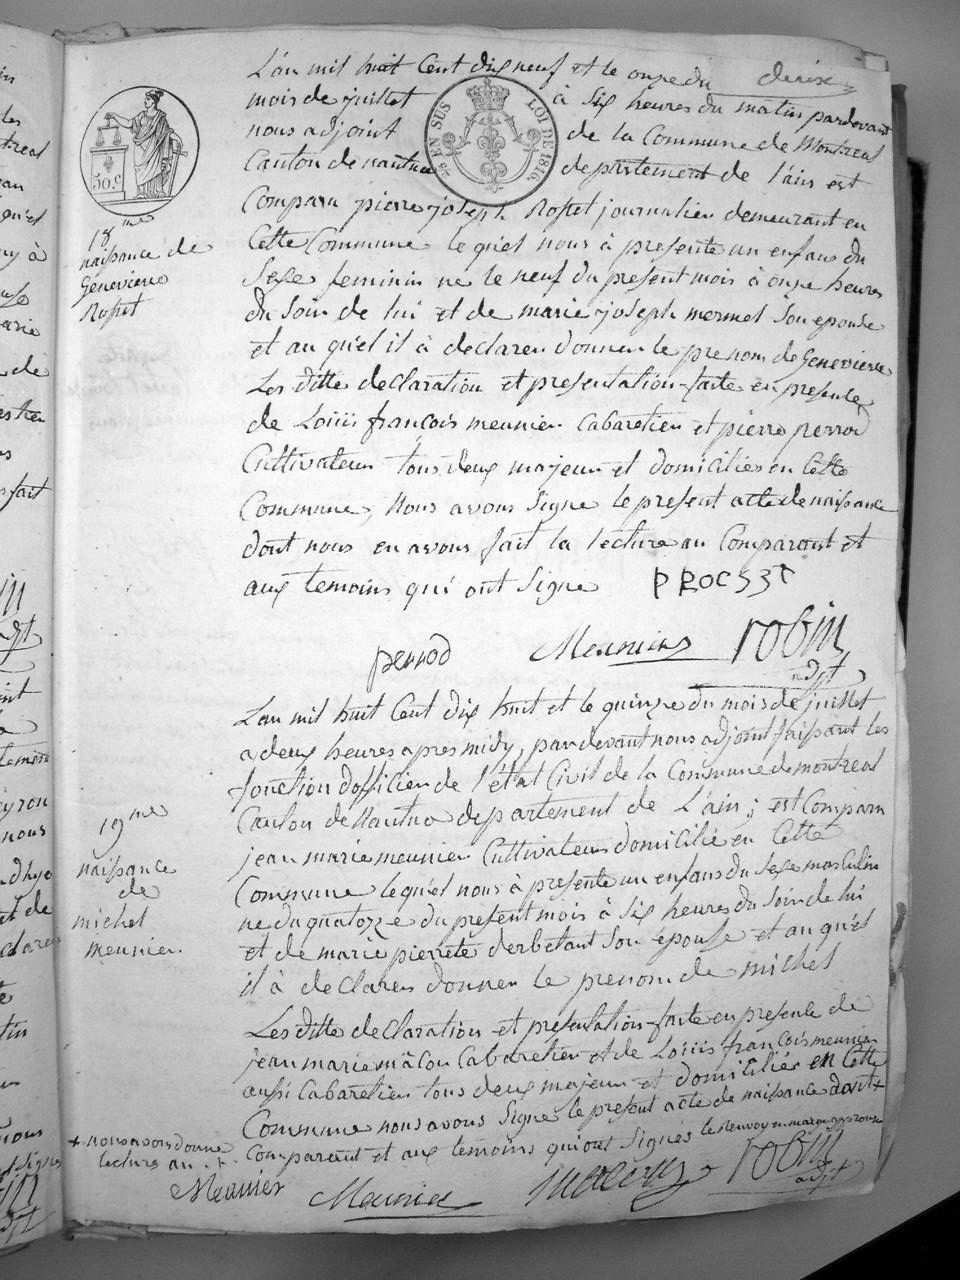 L'an mil huit Cent dix neuf et le onze du
mois de juillet à Six heures du matin pardevant
nous adjoint de la Commune de Montreal
Canton de nantua departement de l'ain est
EN SUS
LOI DE 1816.
50 c
18me
naissance de
Genevieve
Rosset
Comparu pierre joseph Rosset journalier demeurant en
Cette Commune le quel nous à presenté un enfans du
Sexe feminin né le neuf du present mois à onze heures
du Soir de lui et de marie joseph mermet Son epouse
et au qu'el il à declarer donner le prenom de Genevieve
Les ditte declaration et presentation faite en presence
de Louis françois meunier Cabaretier et pierre perrod
Cultivateur tous deux majeur et domicilies en Cette
Commune, Nous avons Signe le present acte de naissance
dont nous en avons fait la lecture au Comparant et
aux temoins qui ont Signe
perrod Meunier robin
adjt
L'an mil huit Cent dix huit et le quinze du mois de juillet
a deux heures apres midy, pardevant nous adjoint faissant les
fonction d'officier de l'état Civil de la Commune de montreal
Canton de Nantua departement de L'ain; est Comparu
19me
naissance
de
michel
meunier
jean marie meunier Cultivateur domicilié en Cette
Commune le qu'el nous à presenté un enfans du Sexe masculin
né du quatorze du present mois à Six heures du Soir de lui
et de marie pierrete derbetant Son épouse et au qu'el
il à declarer donner le prenom de michel
Les ditte declaration et presentation faite en presence de
jean marie mâcon Cabaretier et de Louis françois meunier
aussi Cabaretier tous deux majeur et domicilié en Cette
Commune nous avons Signe le present acte de naissance dont +
+ nous avons donné
lecture au +
Comparant et aux temoins qui ont Signés le Renvoy en marge approuvé
Meunier Meunier robin
adjt